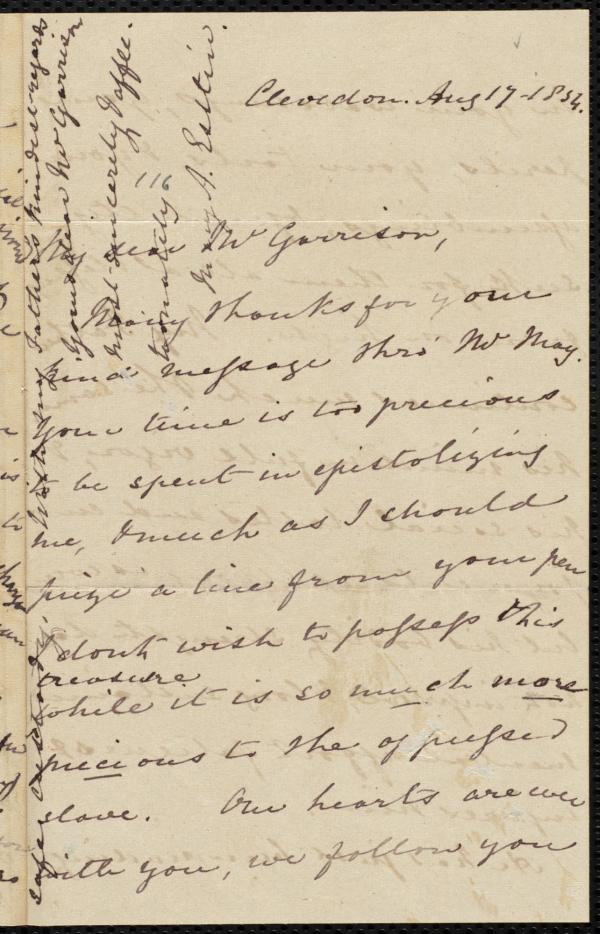 Clevedon. Aug 17-1854.
116
My dear Mr Garrison,
Many thanks for your
kind message thro' Mr May.
Your time is too precious
to be spent in epistolizing
me, & much as I should
prize a line from your pen
I dont wish to possess this
treasure
while it is so much more
precious to the oppressed
slave. Our hearts are ever
with you, we follow you
safe custody.
With my Father's kindest regards
Yours dear Mr Garrison
most sincerely & affec-
tionately
Mary A. Estlin.